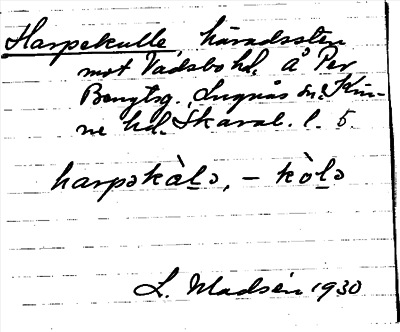 Harpekulle, häradssten
mot Vadsbo hd. å Per
Bengtsg., Lugnås sn. Kin-
ne hd. Skarab. l. 5.
harpəkàl̲ə, – kòl̲ə
L. Madsén 1930